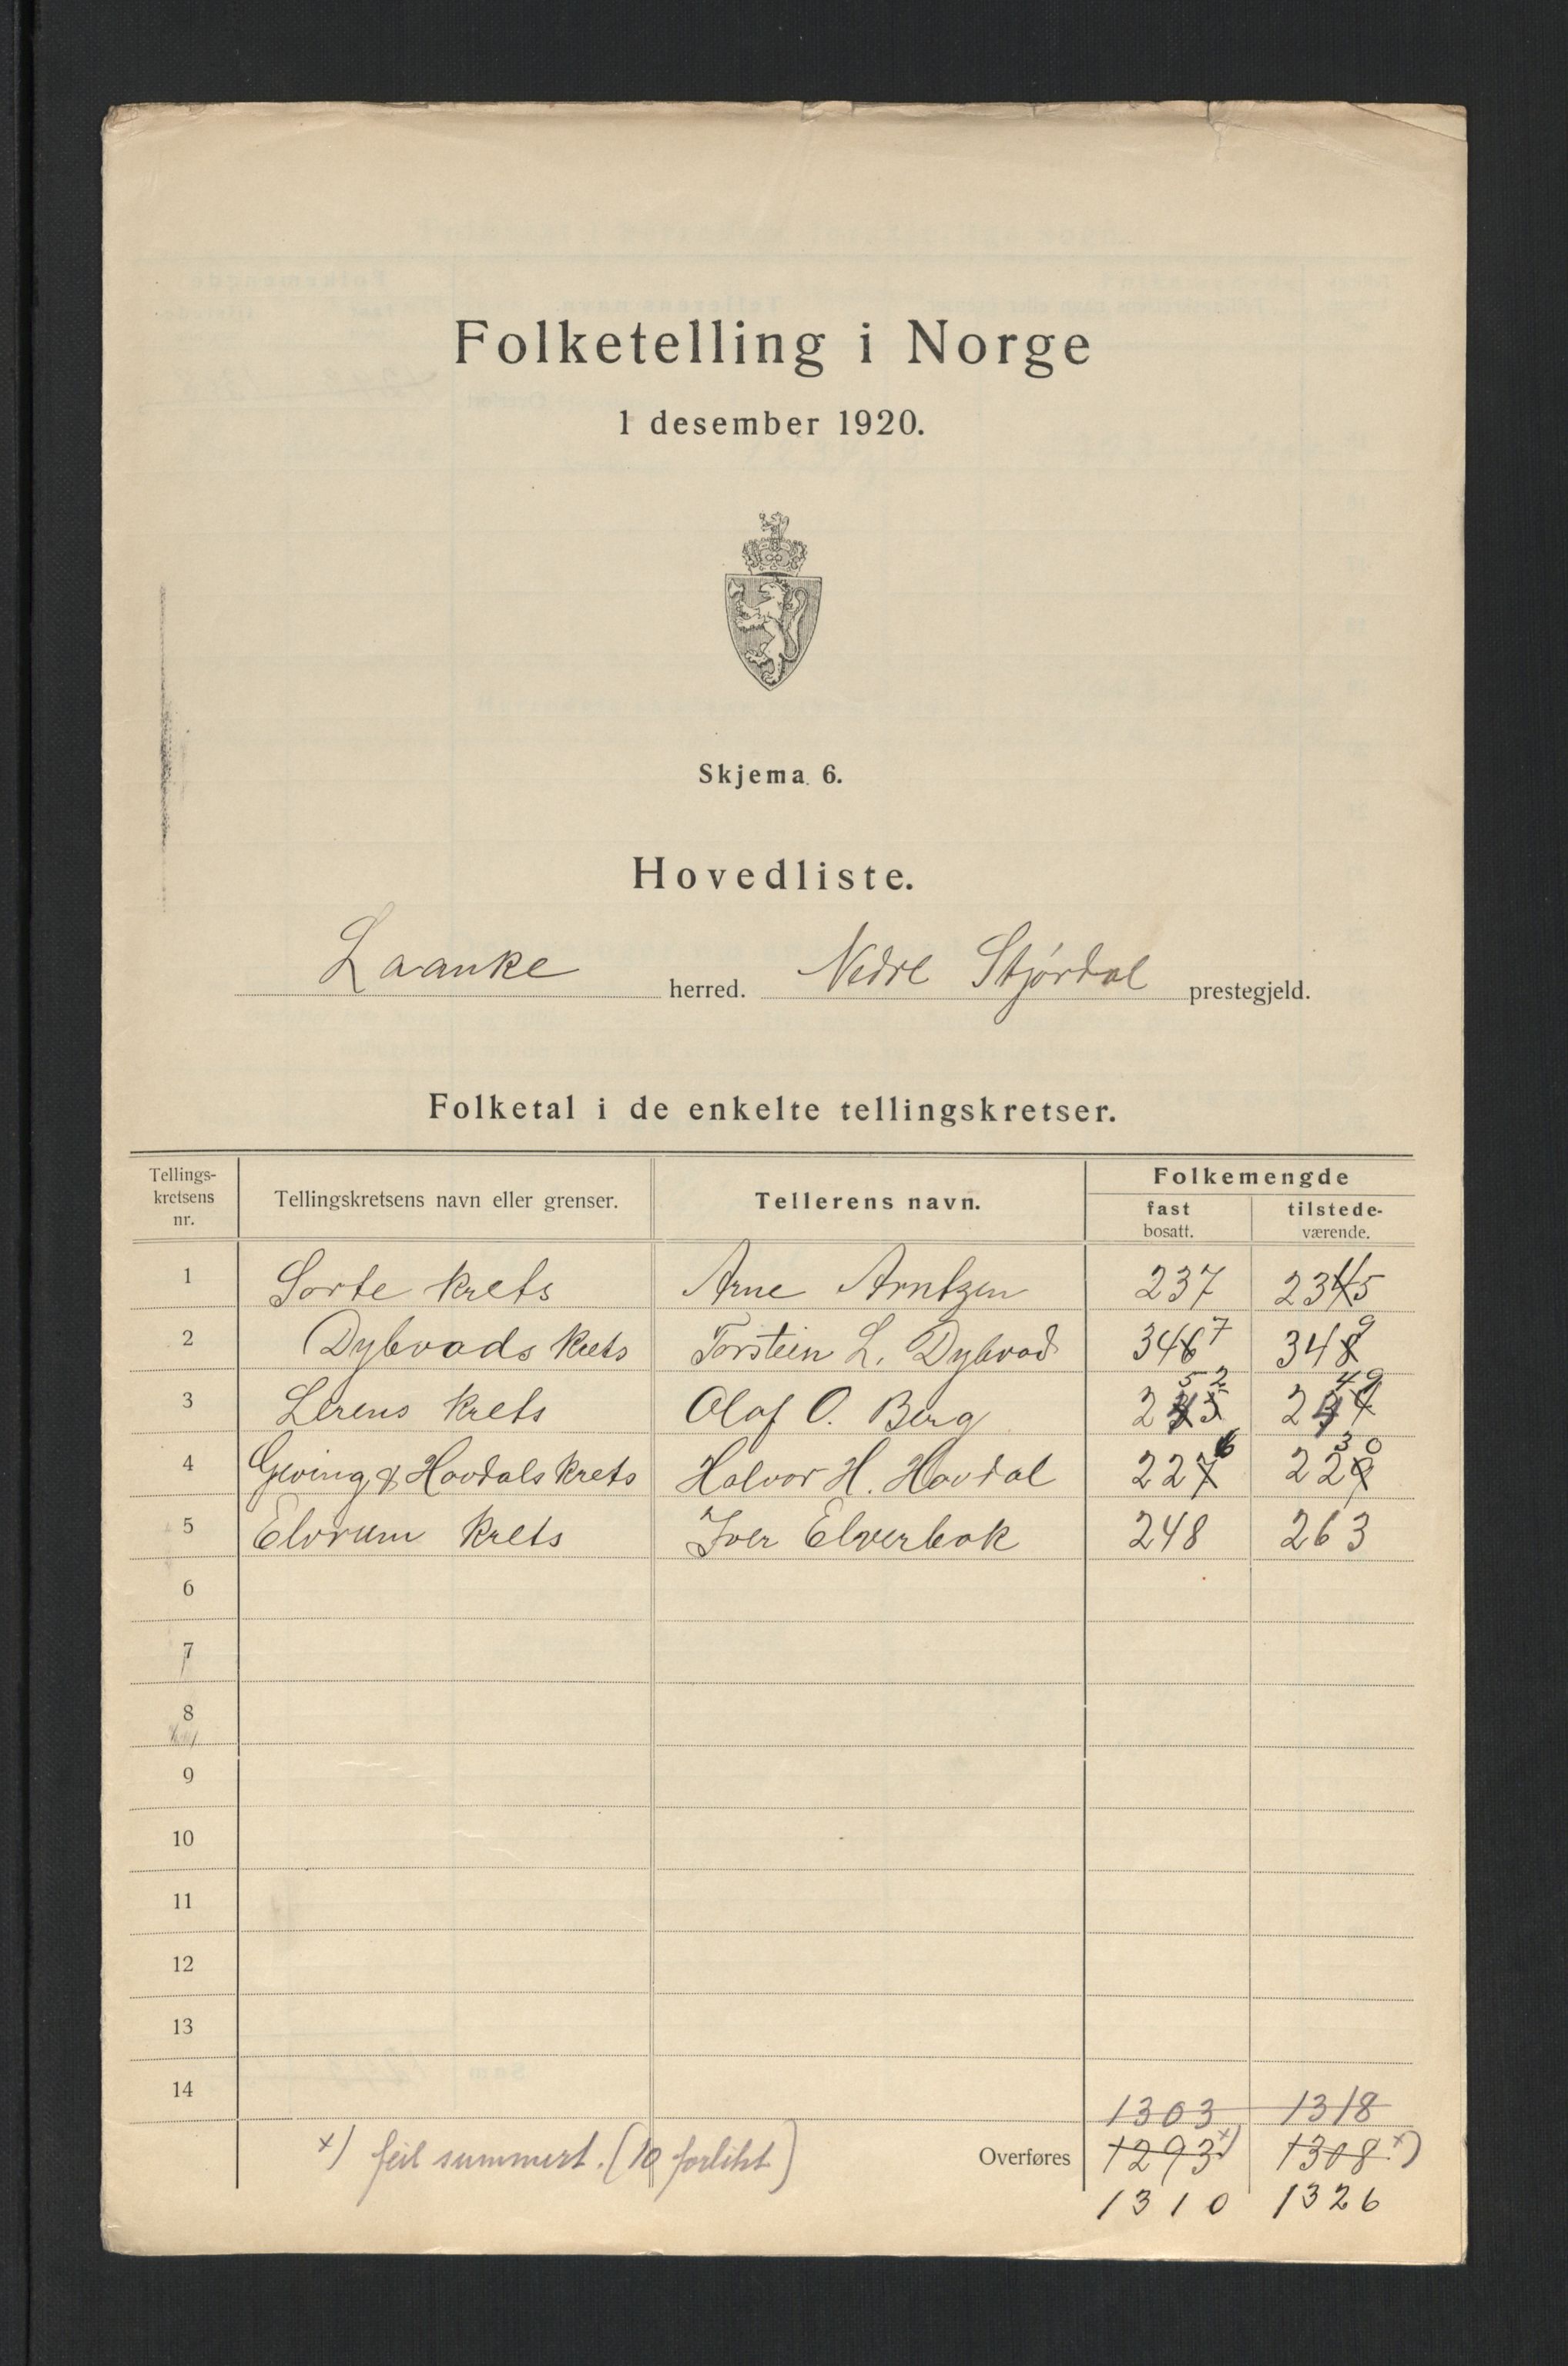 Folketelling i Norge
1 desember 1920.
Skjema 6.
Hovedliste.
Laanke herred. Nedre Stjørdal prestegjeld.
Folketal i de enkelte tellingskretser.
Tellings-kretsens nr. Tellingskretsens navn eller grenser. Tellerens navn. Folkemengde
fast bosatt. tilstede-værende.
1 Sorte krets Arne Arntzen 237 2345
2 Dybvads krets Torstein L. Dybvad 3467 3489
52 49
3 Lerens krets Olaf O. Berg 2 2
6 30
4 Geving & Hovdals krets Halvor H. Hovdal 227 229
5 Elvrum krets Iver Elverbak 248 263
6
7
8
9
10
11
12
13
14
1303 1318
x) feil summert. (10 forlitet) Overføres 1293x) 1308x)
1310 1326